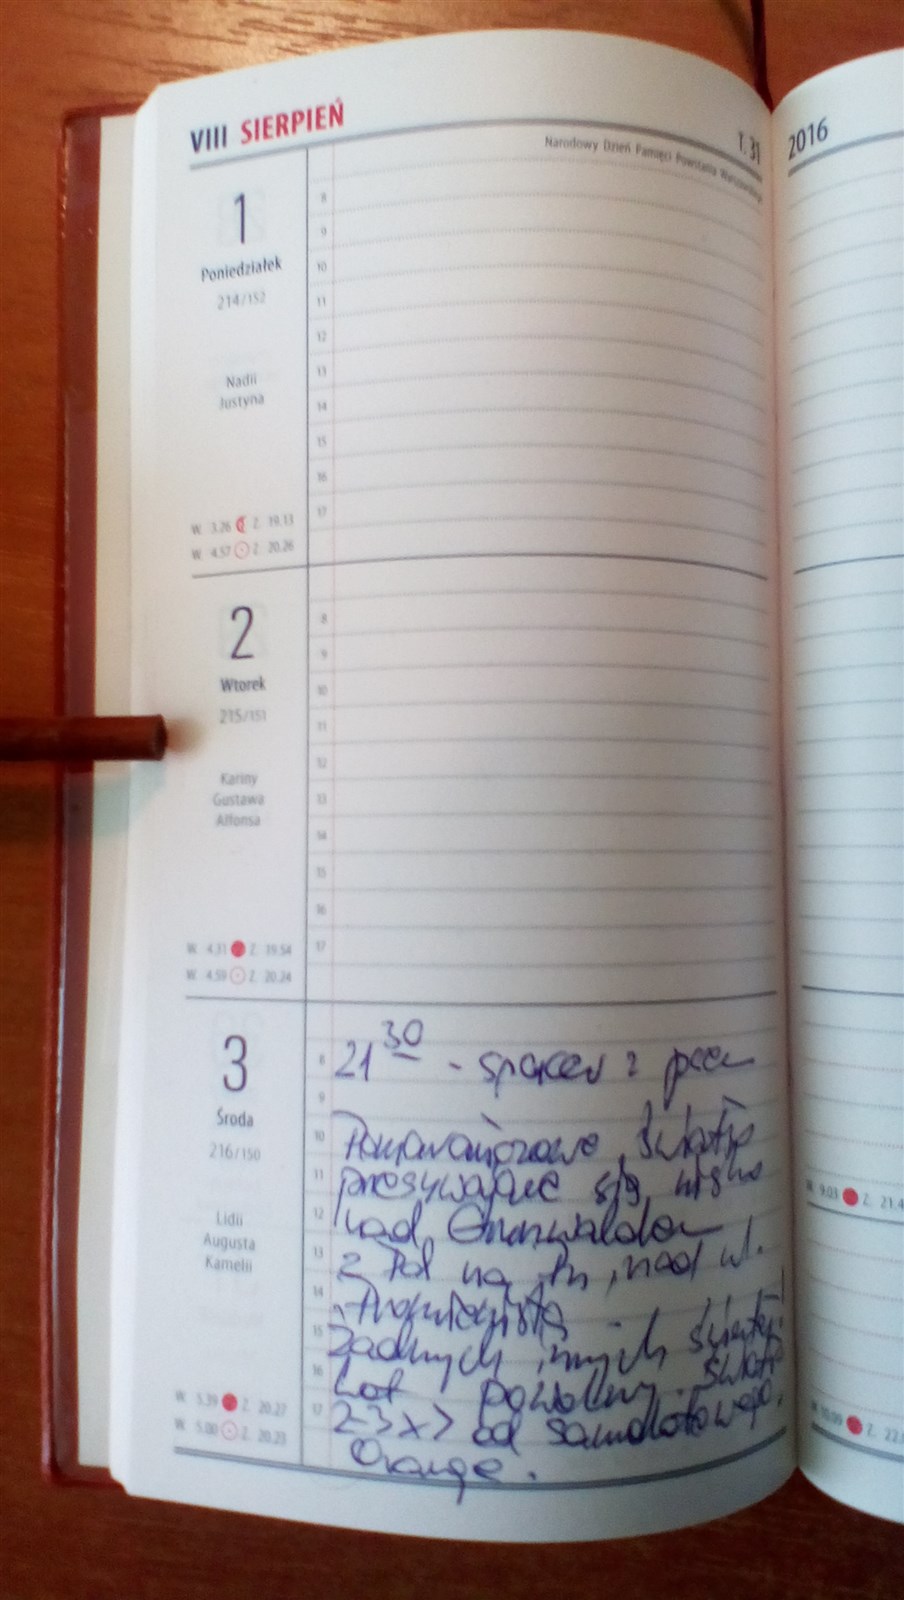 VIII SIERPIEŃ
T. 31
2016
Narodowy Dzień Pamięci Powstania Warszawskiego
1
Poniedziałek
214/152
Nadii
Justyna
W. 3.26 Z. 19.13
W. 4.57 Z. 20.26
8
9
10
11
12
13
14
15
16
17
2
Wtorek
215/151
Kariny
Gustawa
Alfonsa
W. 4.31 Z. 19.54
W. 4.59 Z. 20.24
8
9
10
11
12
13
14
15
16
17
3
Środa
216/150
Lidii
Augusta
Kamelii
W. 5.39 Z. 20.27
W. 5.00 Z. 20.23
8
9
10
11
12
13
14
15
16
17
21 30 - spacer z psem
Pomarańczowe światło
przesuwające się nisko
nad Grunwaldem
z Pd na Pn, nad ul.
Promienistą -
żadnych innych świateł!
Lot powolny. Światło
2-3x > od samolotowego.
Orange.
W. 9.03 Z. 21.4
Z. 22.